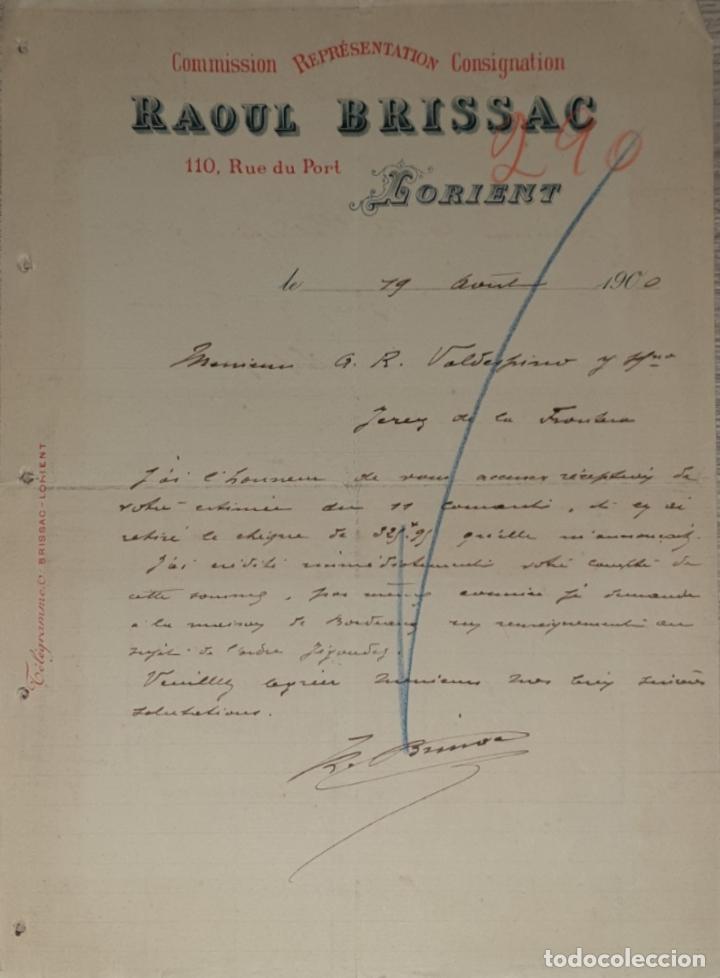 Commission REPRÉSENTATION Consignation
RAOUL BRISSAC
290
110, Rue du Port
LORIENT
le 19 Août 1900
Monsieur A. R. Valdespino y Hno
Jerez de la Frontera
J'ai l'honneur de vous accuser réception de
votre estimée du 11 courant, et y ai
retiré le chèque de 325,95 qu'elle m'annonçait.
J'ai crédité immédiatement votre compte de
cette somme, par même courrier je demande
à la maison de Bordeaux un renseignement au
sujet de l'ordre
Veuillez agréer Monsieur mes sincères
salutations.
R. Brissac
Télégrammes: BRISSAC-LORIENT
todocoleccion
todocoleccion.net